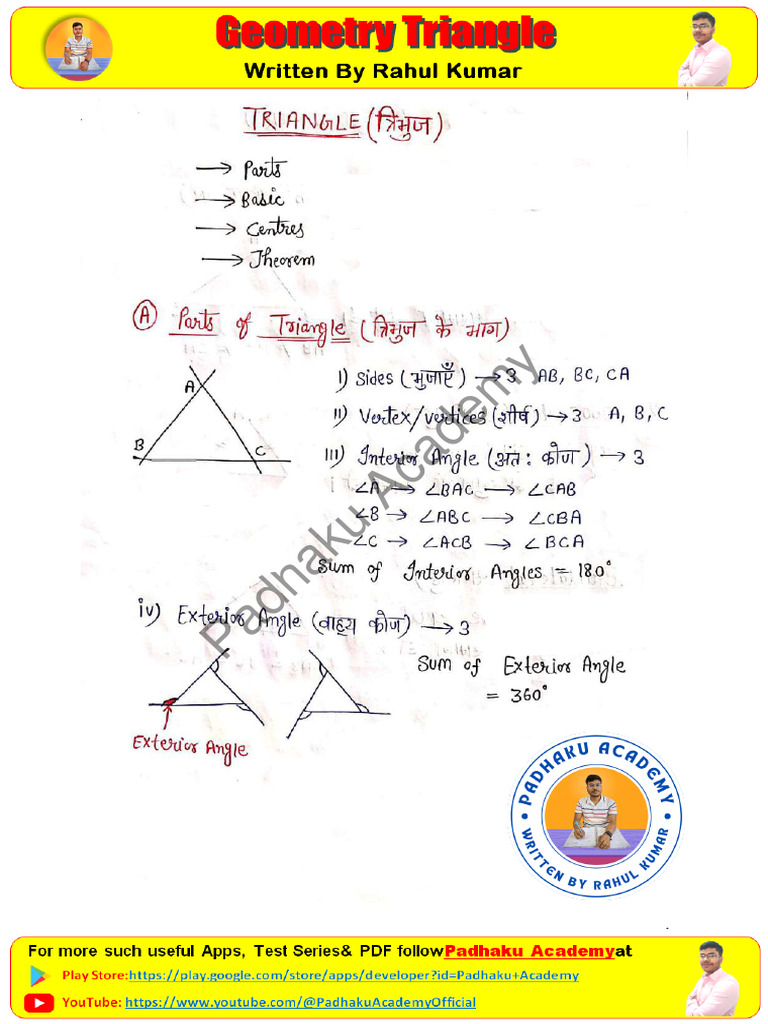 Geometry Triangle
Written By Rahul Kumar
TRIANGLE (त्रिभुज)
→ Parts
→ Basic
→ Centres
→ Theorem
(A) Parts of Triangle (त्रिभुज के भाग)
A
B
C
i) Sides (भुजाएँ) → 3 AB, BC, CA
ii) Vertex/vertices (शीर्ष) → 3 A, B, C
iii) Interior Angle (अंत: कोण) → 3
∠A → ∠BAC → ∠CAB
∠B → ∠ABC → ∠CBA
∠C → ∠ACB → ∠BCA
Sum of Interior Angles = 180°
iv) Exterior Angle (वाह्य कोण) → 3
Sum of Exterior Angle
= 360°
Exterior Angle
Padhaku Academy
PADHAKU ACADEMY
WRITTEN BY RAHUL KUMAR
For more such useful Apps, Test Series& PDF followPadhaku Academyat
Play Store:https://play.google.com/store/apps/developer?id=Padhaku+Academy
YouTube: https://www.youtube.com/@PadhakuAcademyOfficial